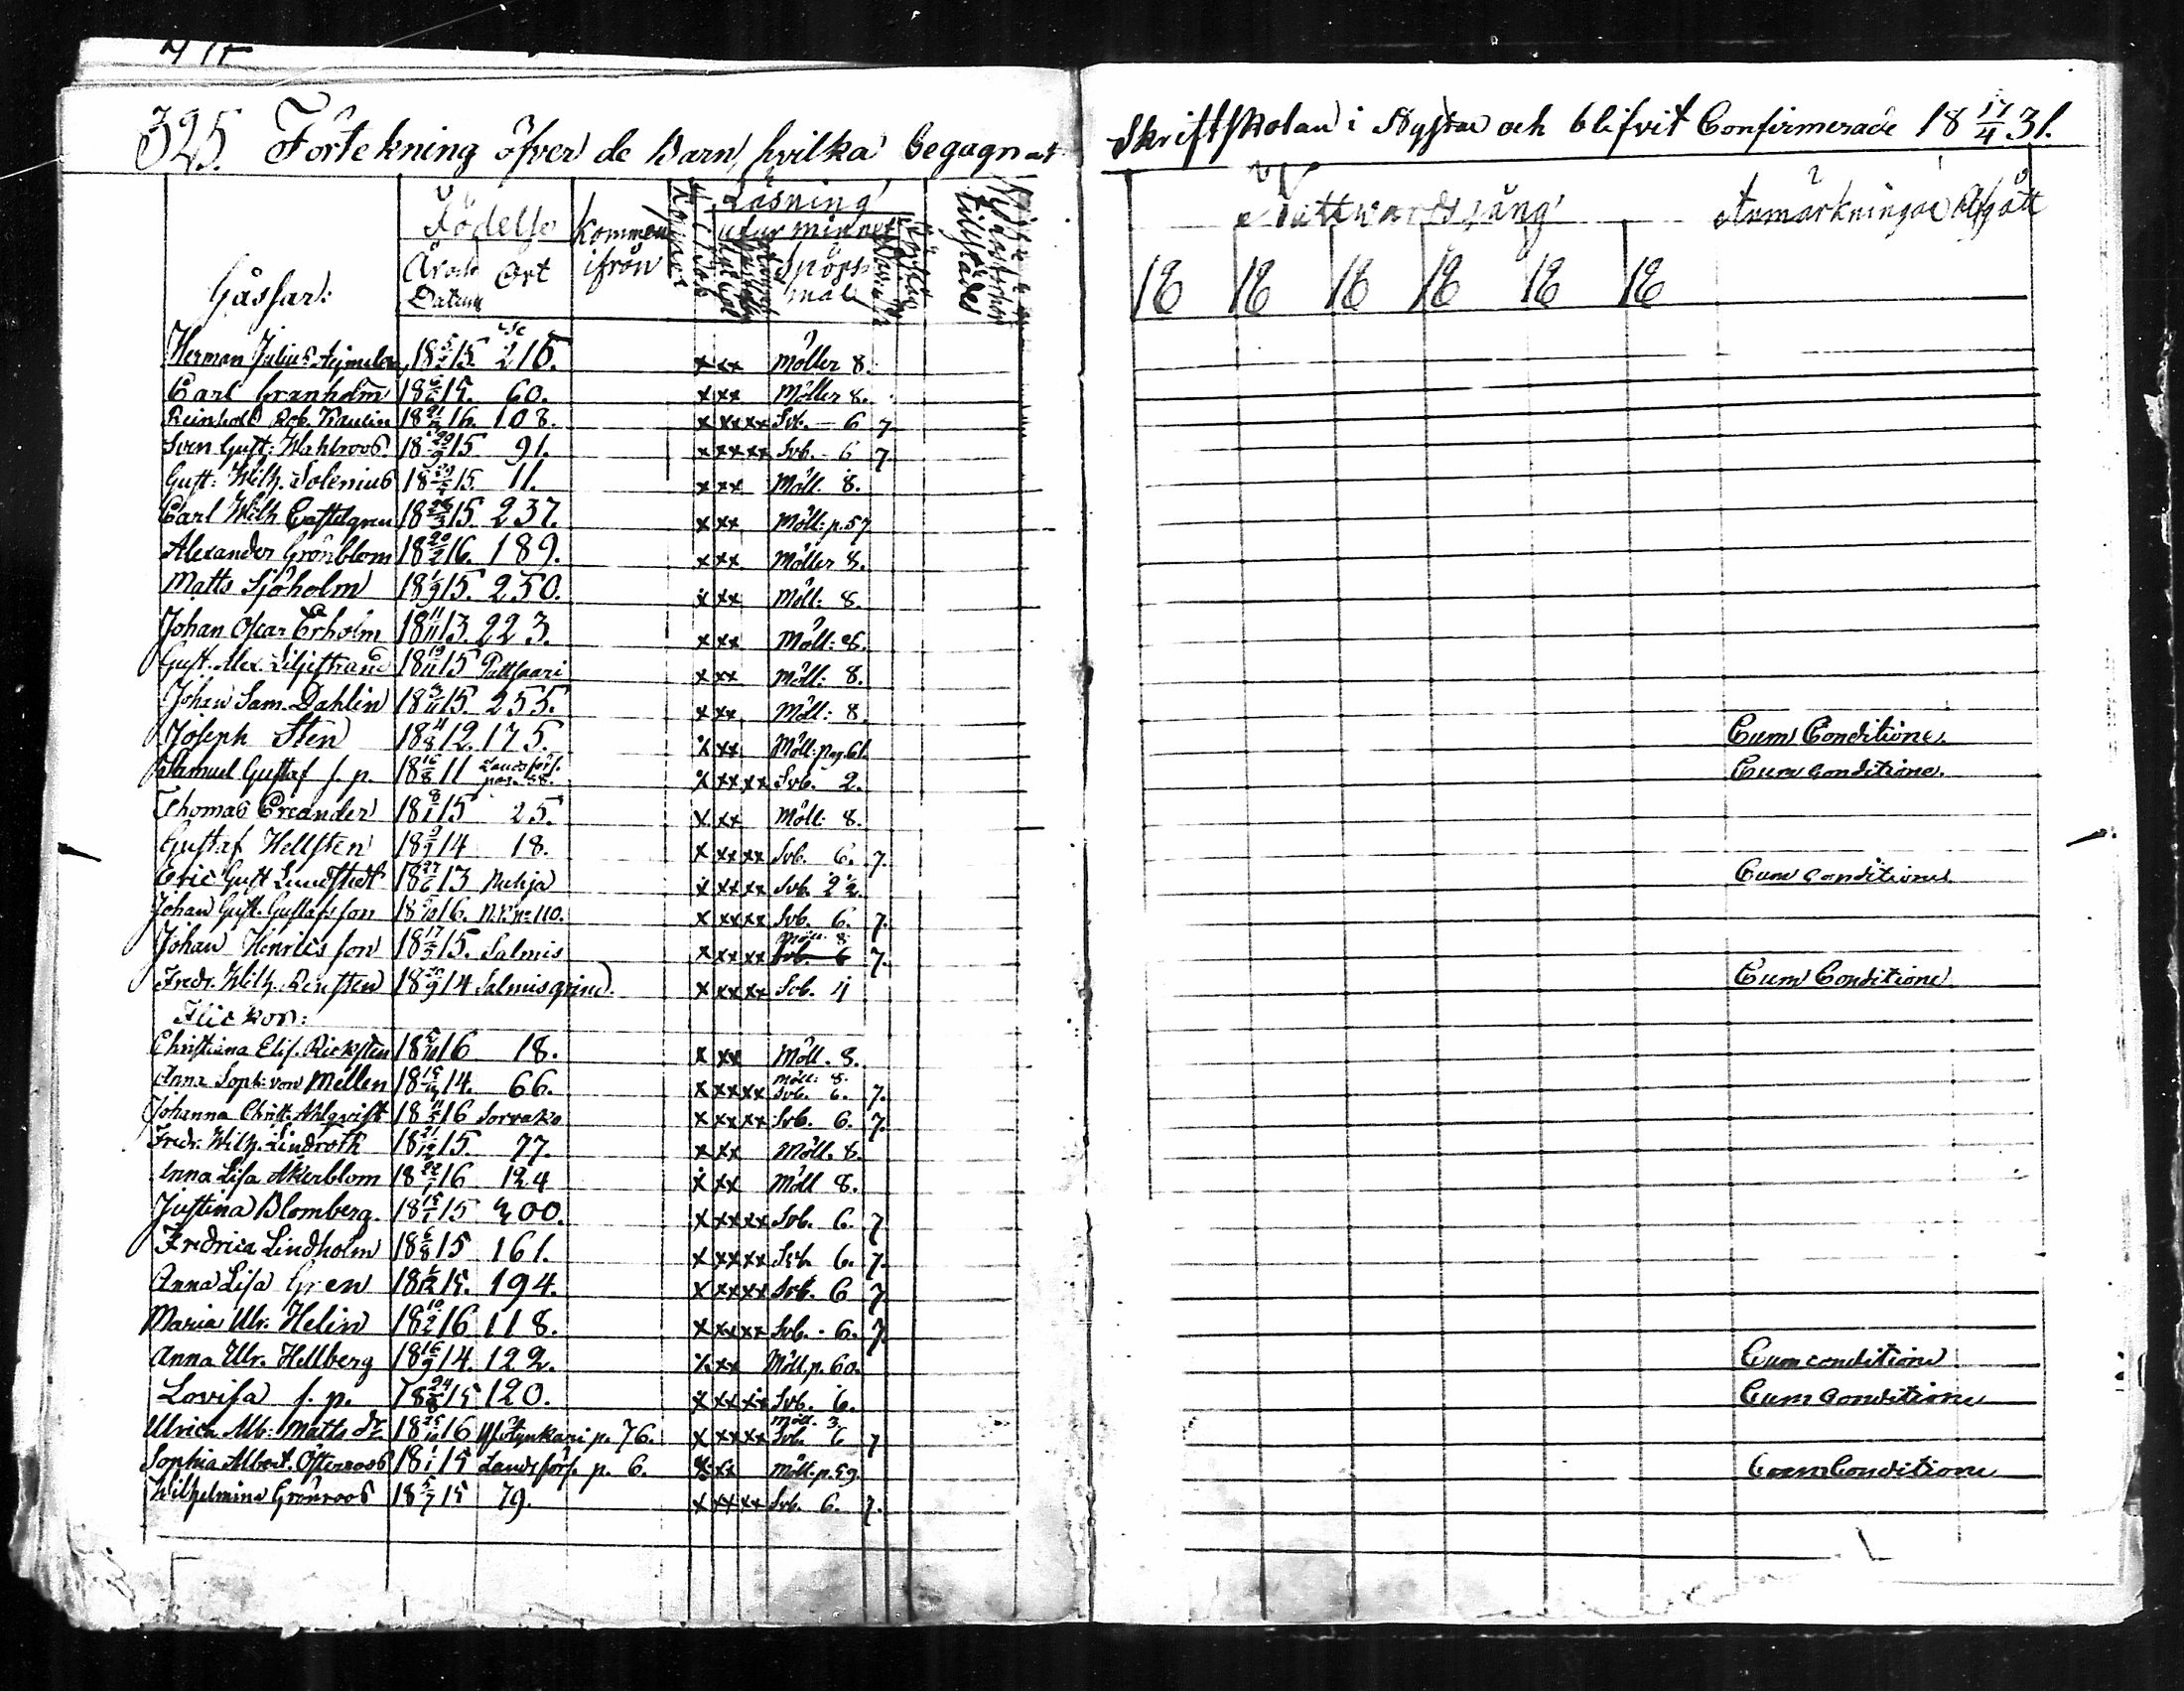 325. Förtekning öfver de Barn, hvilka begagnat Skriftskolan i Nystad och blifvit Confirmerade 18 17/4 31.
Gåssar: Födelse År och Datum Ort Kommen ifrån Läsning utur minnet Spörsmål Nattwardsgång 18 18 18 18 18 18 Anmärkningar Afgått
Herman Julius 18 15. 215. x xx Möller 8.
Carl Granholm 18 15. 60. x xx Möller 8.
Reinhold Rob. Kaulin 18 16. 108. x xx xx Svb. - 6 7
Sven Gust: Wahlroos 18 15. 91. x xx xx Svb. - 6 7
Gust: Wilh. Solenius 18 15. 11. x xx Möll. 8.
Carl Wilh Castelgren 18 26/3 15. 237. x xx Möll: p. 57
Alexander Grönblom 18 20/2 16. 189. x xx Möller 8.
Matts Sjöholm 18 1/9 15. 250. x xx Möll: 8.
Johan Oscar Erholm 18 11/11 13. 223. x xx Möll: 8.
Gust. Alex. Liljestrand 18 19/11 15 Puttsaari x xx Möll: 8.
Johan Sam. Dahlin 18 3/11 15. 255. x xx Möll: 8.
Joseph Sten 18 4/8 12. 175. x xx Möll: pag. 61. Cum Conditione.
Samuel Gustaf s. p. 18 16/8 11 Landsförs. pag. 58. x xx xx Svb. 2. Cum conditione.
Thomas Creander 18 8/1 15 25. x xx Möll. 8.
Gustaf Hellsten 18 14 18. x xx xx Svb. 6. 7.
Eric Gust Lundstedt 18 27/6 13 x xx xx Svb. 2 1/2. Cum Conditione
Johan Gust. Gustafsson 18 16. 110. x xx xx Svb. 6. 7.
Johan Henricsson 18 17 15. Salmis x xx xx Möll. 8 Svb. 6 7.
Fredr. Wilh. Rensten 18 20/9 14 Salmis grind. x xx xx Svb. 4 Cum Conditione
Flickor:
Christiina Elis. Ricksten 18 5/10 16 18. x xx Möll. 8.
Anna Soph: von Mellen 18 14. 66. x xx xx Möll: 8. Svb. 6. 7.
Johanna Christ. Ahlqvist 18 11/5 16 Sorvako x xx xx Svb. 6. 7.
Fredr. Wilh. Lindroth 18 21/12 15. 77. x xx Möll. 8.
Anna Lisa Åkerblom 18 22/1 16 124 x xx Möll 8.
Justina Blomberg. 18 15 200. x xx xx Svb. 6. 7
Fredrica Lindholm 18 6/8 15 161. x xx xx Svb. 6. 7.
Anna Lisa Gren 18 15. 194. x xx xx Svb. 6 7.
Maria Ulr. Helin 18 10/2 16 118. x xx xx Svb. - 6. 7.
Anna Ulr. Hellberg 18 16/9 14. 122. x xx Möll. p. 60. Cum conditione
Lovisa s. p. 18 24/8 15 120. x xx xx Svb. 6. Cum Conditione
Ulrica Matts Dr 18 16 p. 76. x xx xx Möll. 3. Svb. 6 7
Sophia Albert. Österroos 18 1/1 15 Landsförs. p. 6. x xx Möll. p. 59. Cum Conditione
Wilhelmina Grönroos 18 5/7 15 79. x xx xx Svb. 6. 7.